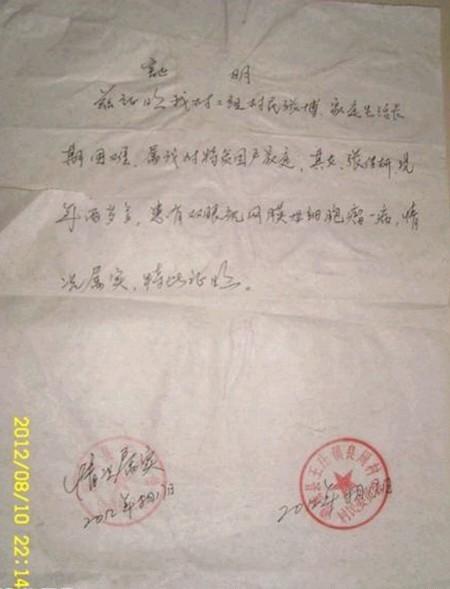 证 明
兹证明我村二组村民张博，家庭生活长
期困难，属我村特贫困户家庭，其女，张佳研，现
年两岁多，患有双眼视网膜母细胞瘤一病，情
况属实，特此证明。
情况属实
2012年
2012年
村民委员会
2012/08/10 22:14